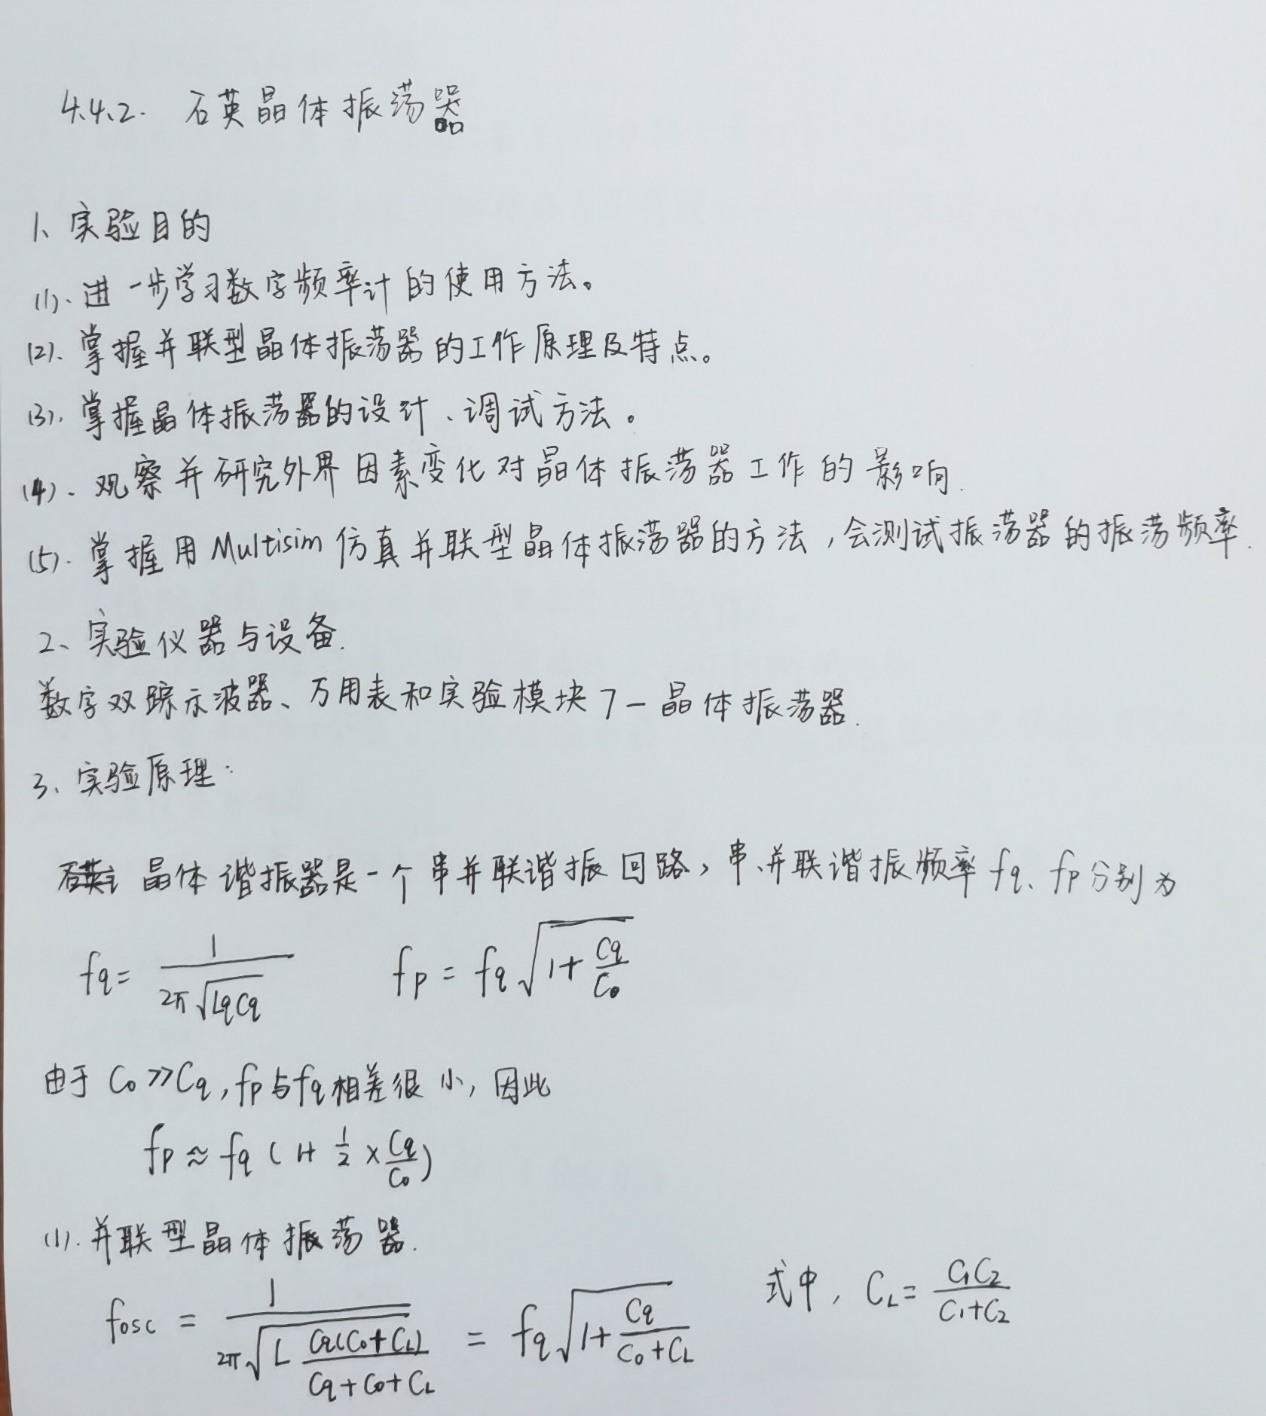 4.4.2. 石英晶体振荡器
1、实验目的
(1)、进一步学习数字频率计的使用方法。
(2)、掌握并联型晶体振荡器的工作原理及特点。
(3)、掌握晶体振荡器的设计、调试方法。
(4)、观察并研究外界因素变化对晶体振荡器工作的影响.
(5)、掌握用Multisim仿真并联型晶体振荡器的方法,会测试振荡器的振荡频率.
2、实验仪器与设备.
数字双踪示波器、万用表和实验模块7-晶体振荡器.
3、实验原理:
石英晶体谐振器是一个串并联谐振回路,串、并联谐振频率fq、fp分别为
fq = 1/(2π√(LqCq))  fp = fq√(1+Cq/C0)
由于C0≫Cq,fp与fq相差很小,因此
fp ≈ fq(1+1/2×Cq/C0)
(1).并联型晶体振荡器.
fosc = 1/(2π√(L Cq(C0+CL)/(Cq+C0+CL))) = fq√(1+Cq/(C0+CL))  式中, CL=C1C2/(C1+C2)